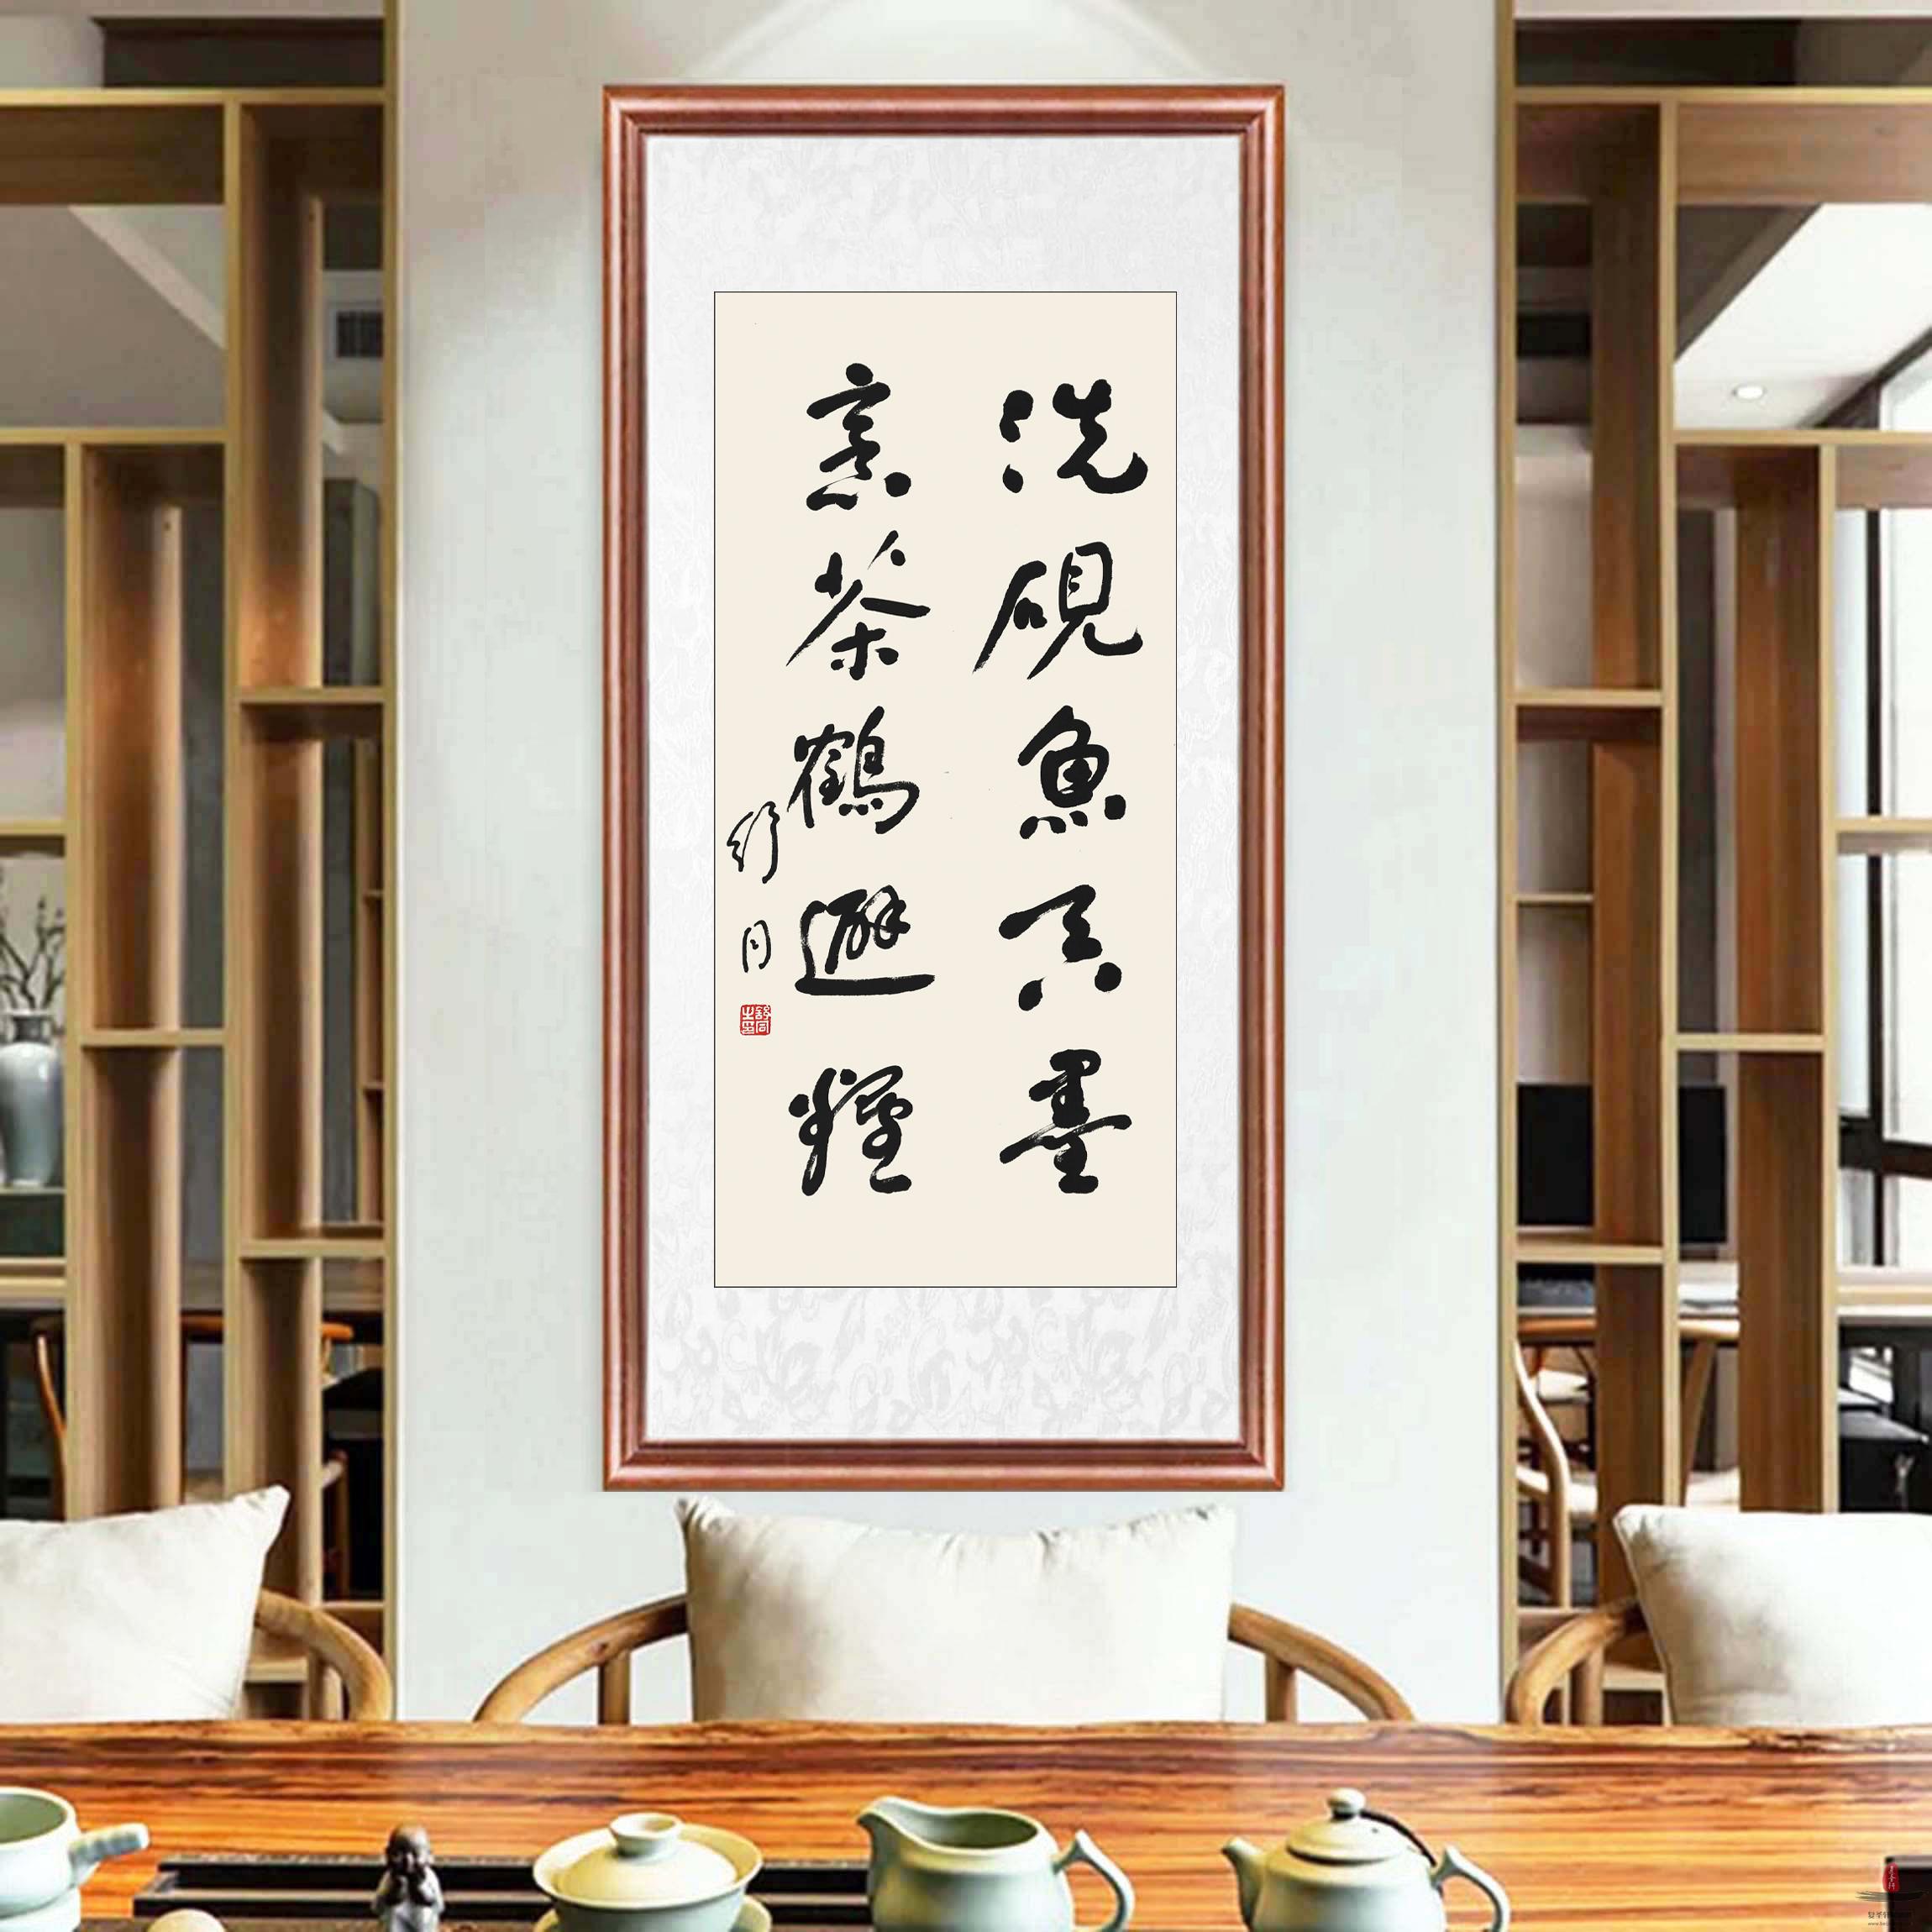 洗硯魚吞墨
烹茶鶴避煙
舒同
舒同之印